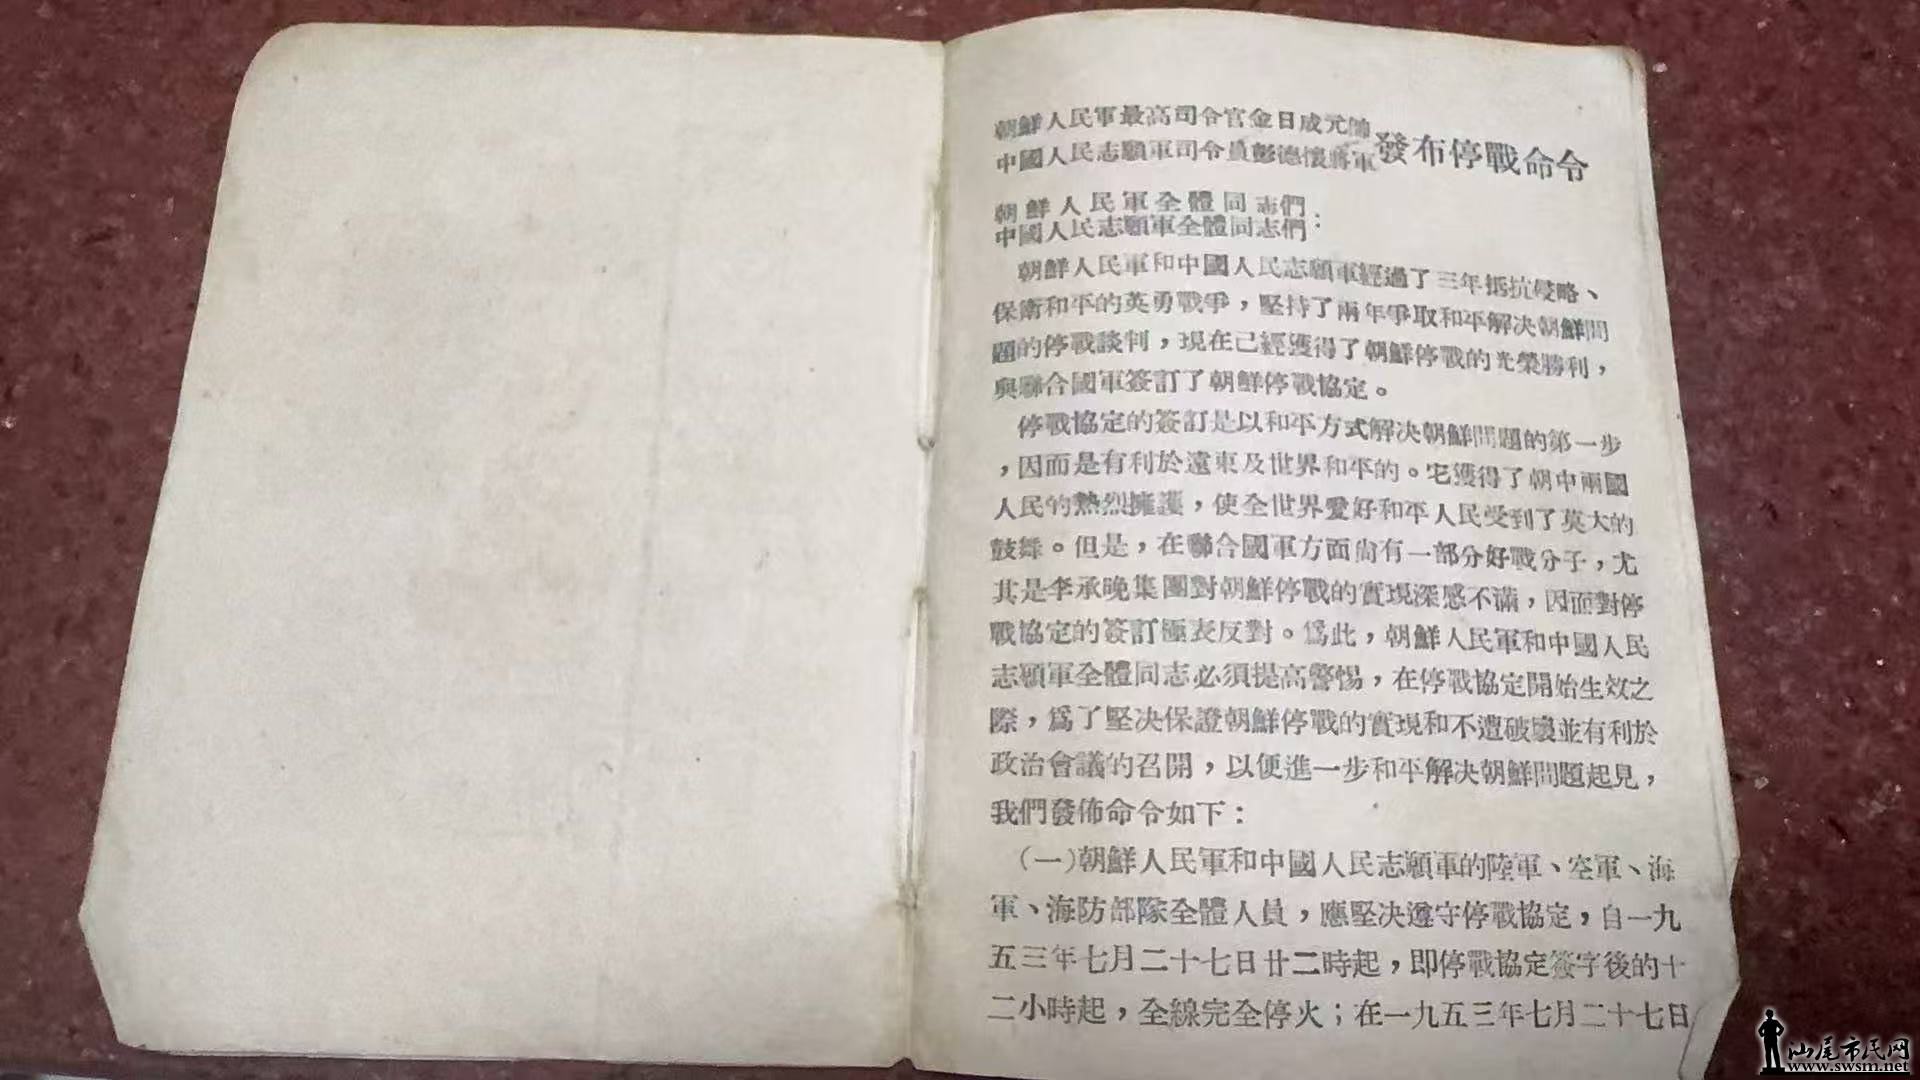 朝鮮人民軍最高司令官金日成元帥
中國人民志願軍司令員彭德懷將軍
發布停戰命令
朝鮮人民軍全體同志們
中國人民志願軍全體同志們：
朝鮮人民軍和中國人民志願軍經過了三年抵抗侵略、
保衛和平的英勇戰爭，堅持了兩年爭取和平解决朝鮮問
題的停戰談判，現在已經獲得了朝鮮停戰的光榮勝利，
與聯合國軍簽訂了朝鮮停戰協定。
停戰協定的簽訂是以和平方式解决朝鮮問題的第一步
，因而是有利於遠東及世界和平的。它獲得了朝中兩國
人民的熱烈擁護，使全世界愛好和平人民受到了莫大的
鼓舞。但是，在聯合國軍方面尚有一部分好戰分子，尤
其是李承晚集團對朝鮮停戰的實現深感不滿，因而對停
戰協定的簽訂極表反對。爲此，朝鮮人民軍和中國人民
志願軍全體同志必須提高警惕，在停戰協定開始生效之
際，爲了堅决保證朝鮮停戰的實現和不遭破壞並有利於
政治會議的召開，以便進一步和平解决朝鮮問題起見，
我們發佈命令如下：
（一）朝鮮人民軍和中國人民志願軍的陸軍、空軍、海
軍、海防部隊全體人員，應堅决遵守停戰協定，自一九
五三年七月二十七日廿二時起，即停戰協定簽字後的十
二小時起，全線完全停火；在一九五三年七月二十七日
汕尾市民网
www.swsm.net